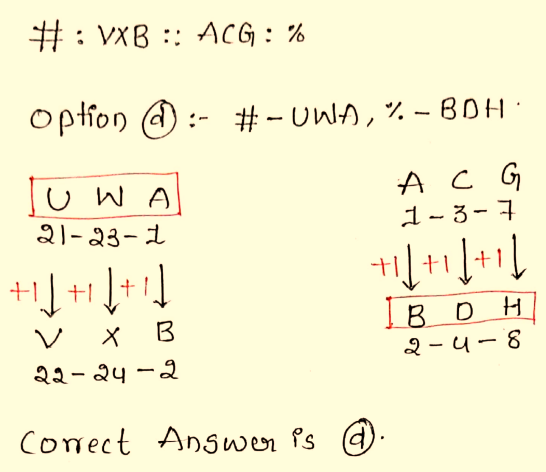 # : VXB :: ACG : %
Option ⓓ :- # - UWA, % - BDH.
U W A
21-23-1
+1↓ +1↓ +1↓
V X B
22-24-2
A C G
1-3-7
+1↓ +1↓ +1↓
B D H
2-4-8
Correct Answer is ⓓ.